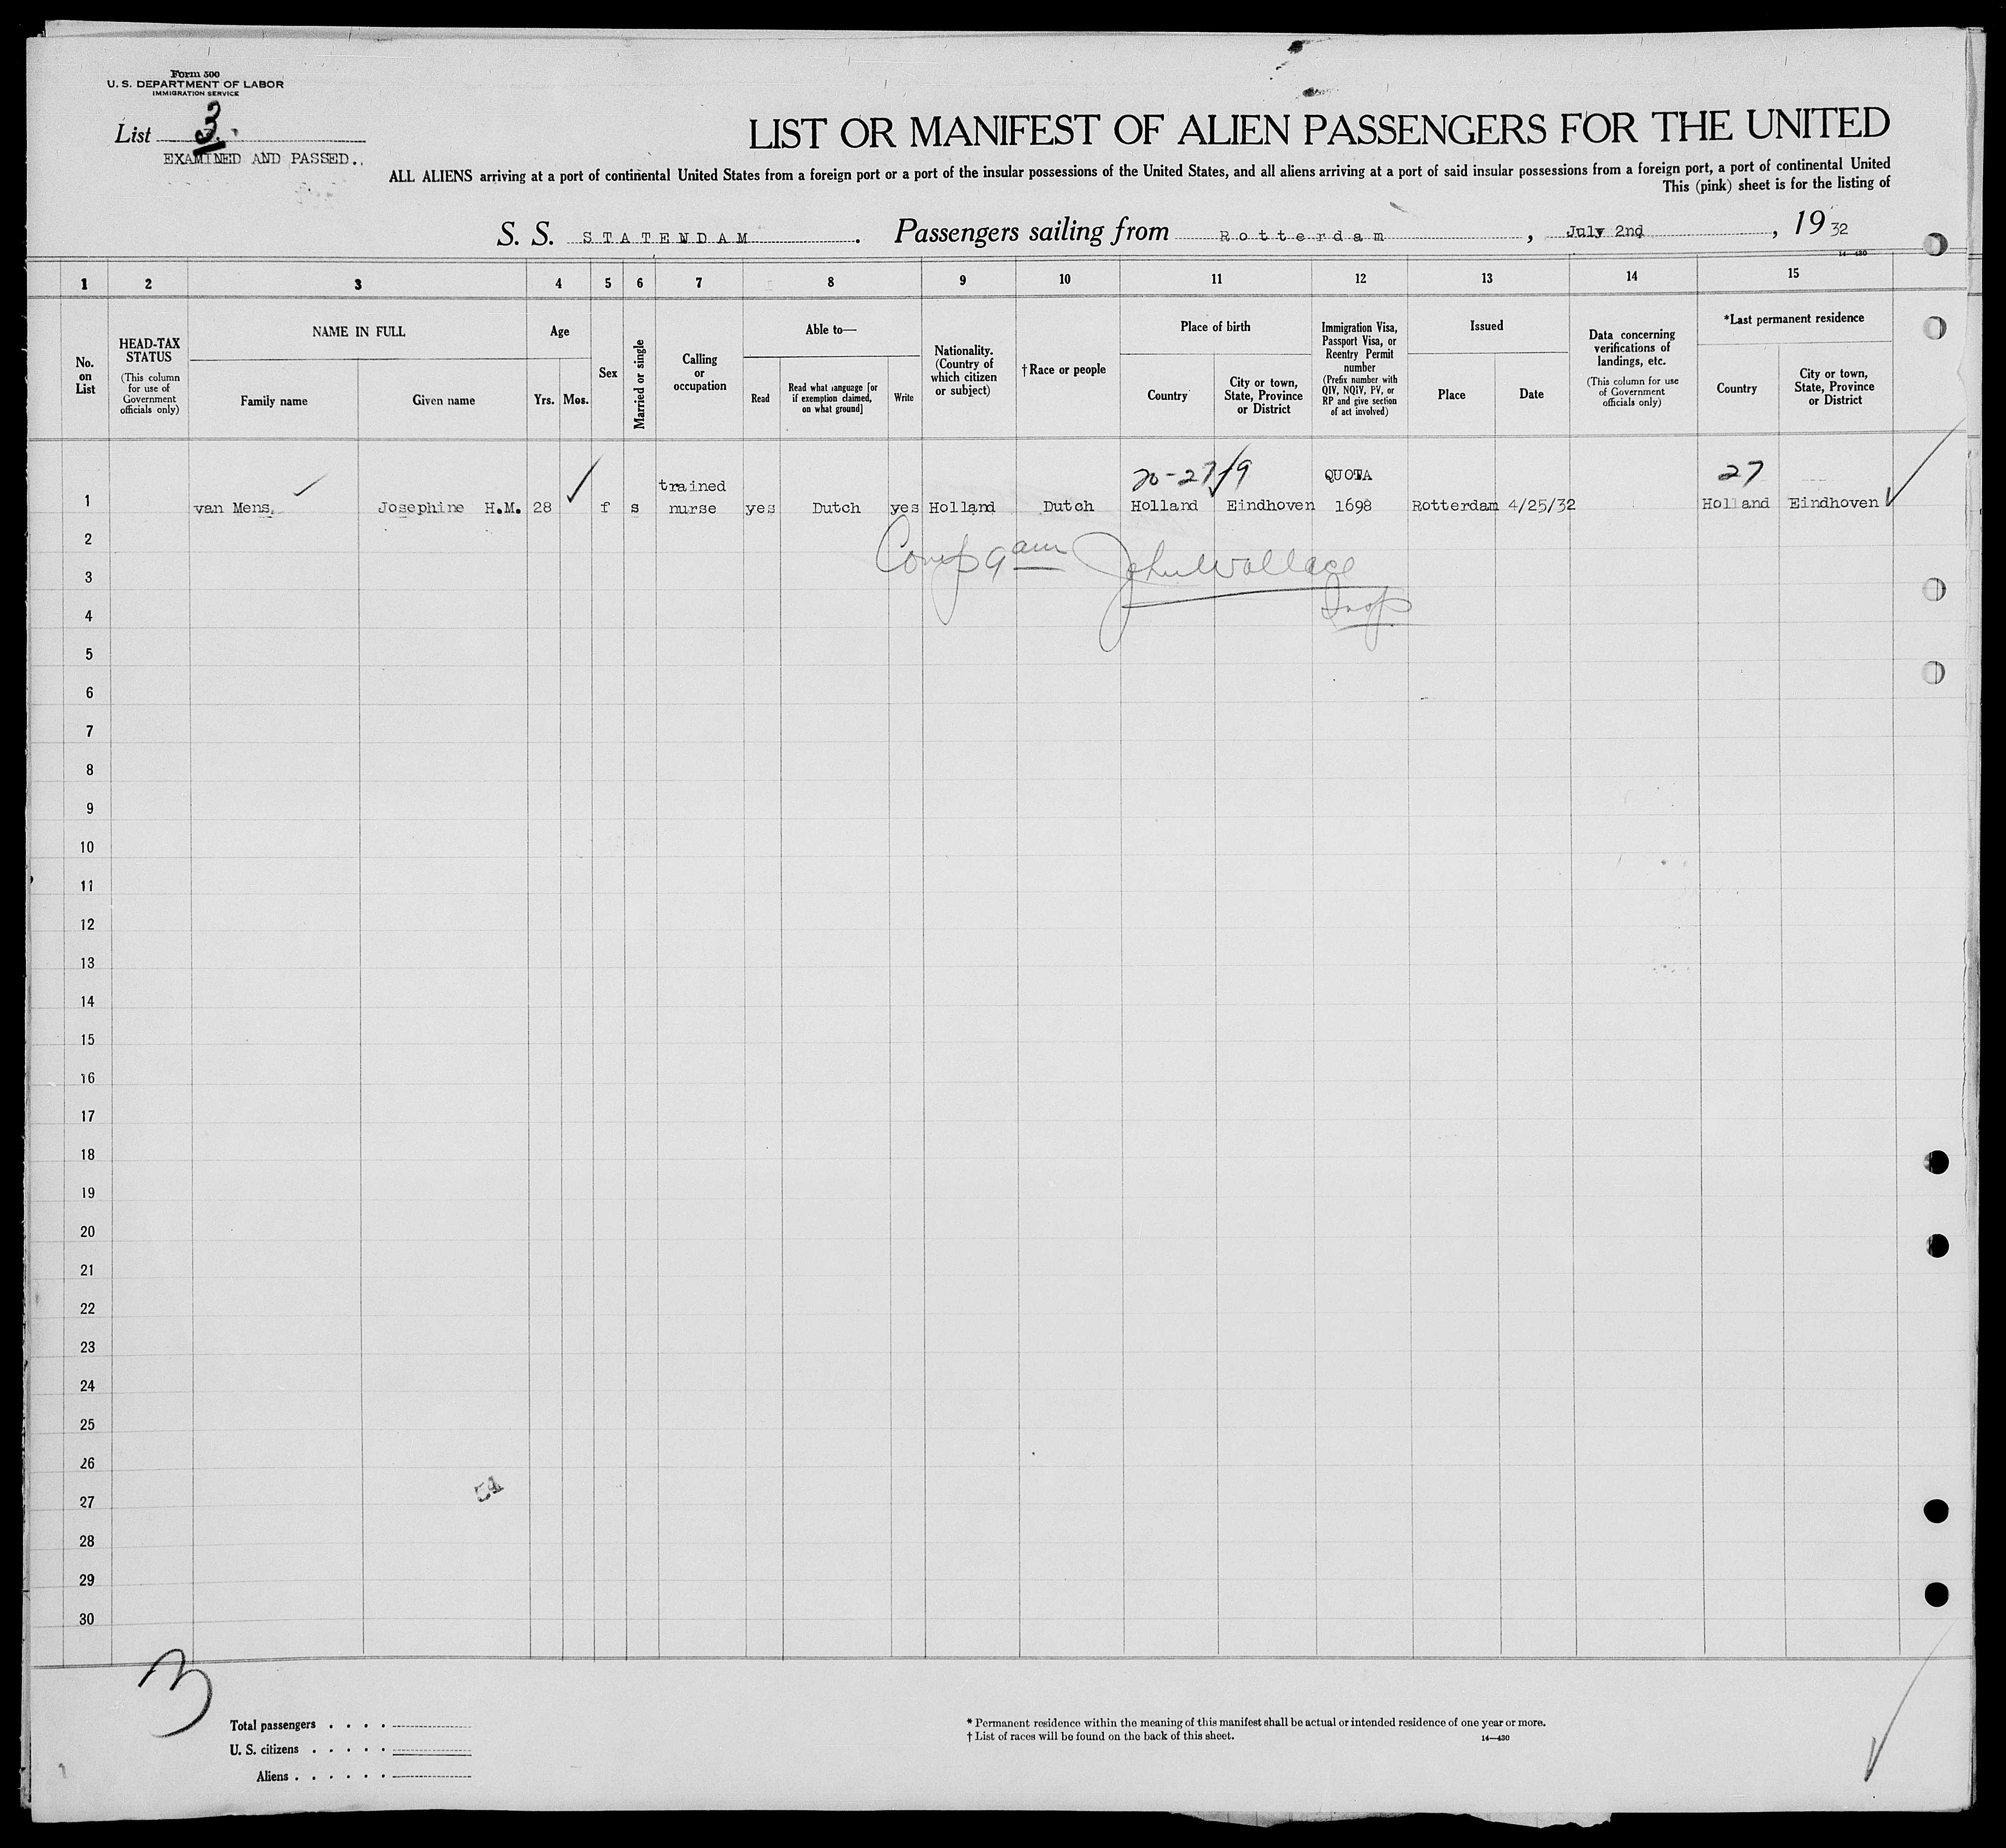 Form 500
U. S. DEPARTMENT OF LABOR
IMMIGRATION SERVICE
List 3.
EXAMINED AND PASSED.
LIST OR MANIFEST OF ALIEN PASSENGERS FOR THE UNITED
ALL ALIENS arriving at a port of continental United States from a foreign port or a port of the insular possessions of the United States, and all aliens arriving at a port of said insular possessions from a foreign port, a port of continental United
This (pink) sheet is for the listing of
S. S. STATENDAM. Passengers sailing from Rotterdam, July 2nd, 1932
14—430
1 2 3 4 5 6 7 8 9 10 11 12 13 14 15
No. on List
HEAD-TAX STATUS (This column for use of Government officials only)
NAME IN FULL
Family name
Given name
Age
Yrs.
Mos.
Sex
Married or single
Calling or occupation
Able to—
Read
Read what language [or if exemption claimed, on what ground]
Write
Nationality. (Country of which citizen or subject)
†Race or people
Place of birth
Country
City or town, State, Province or District
Immigration Visa, Passport Visa, or Reentry Permit number (Prefix number with QIV, NQIV, PV, or RP and give section of act involved)
Issued
Place
Date
Data concerning verifications of landings, etc. (This column for use of Government officials only)
*Last permanent residence
Country
City or town, State, Province or District
20-27/9 QUOTA 27
1 van Mens, Josephine H.M. 28 f s trained nurse yes Dutch yes Holland Dutch Holland Eindhoven 1698 Rotterdam 4/25/32 Holland Eindhoven
2
Comp 9 am John Wallace
3
Insp
4
5
6
7
8
9
10
11
12
13
14
15
16
17
18
19
20
21
22
23
24
25
26
27
28
29
30
3
Total passengers . . . .
U. S. citizens . . . . .
Aliens . . . . . .
* Permanent residence within the meaning of this manifest shall be actual or intended residence of one year or more.
† List of races will be found on the back of this sheet.
14—430